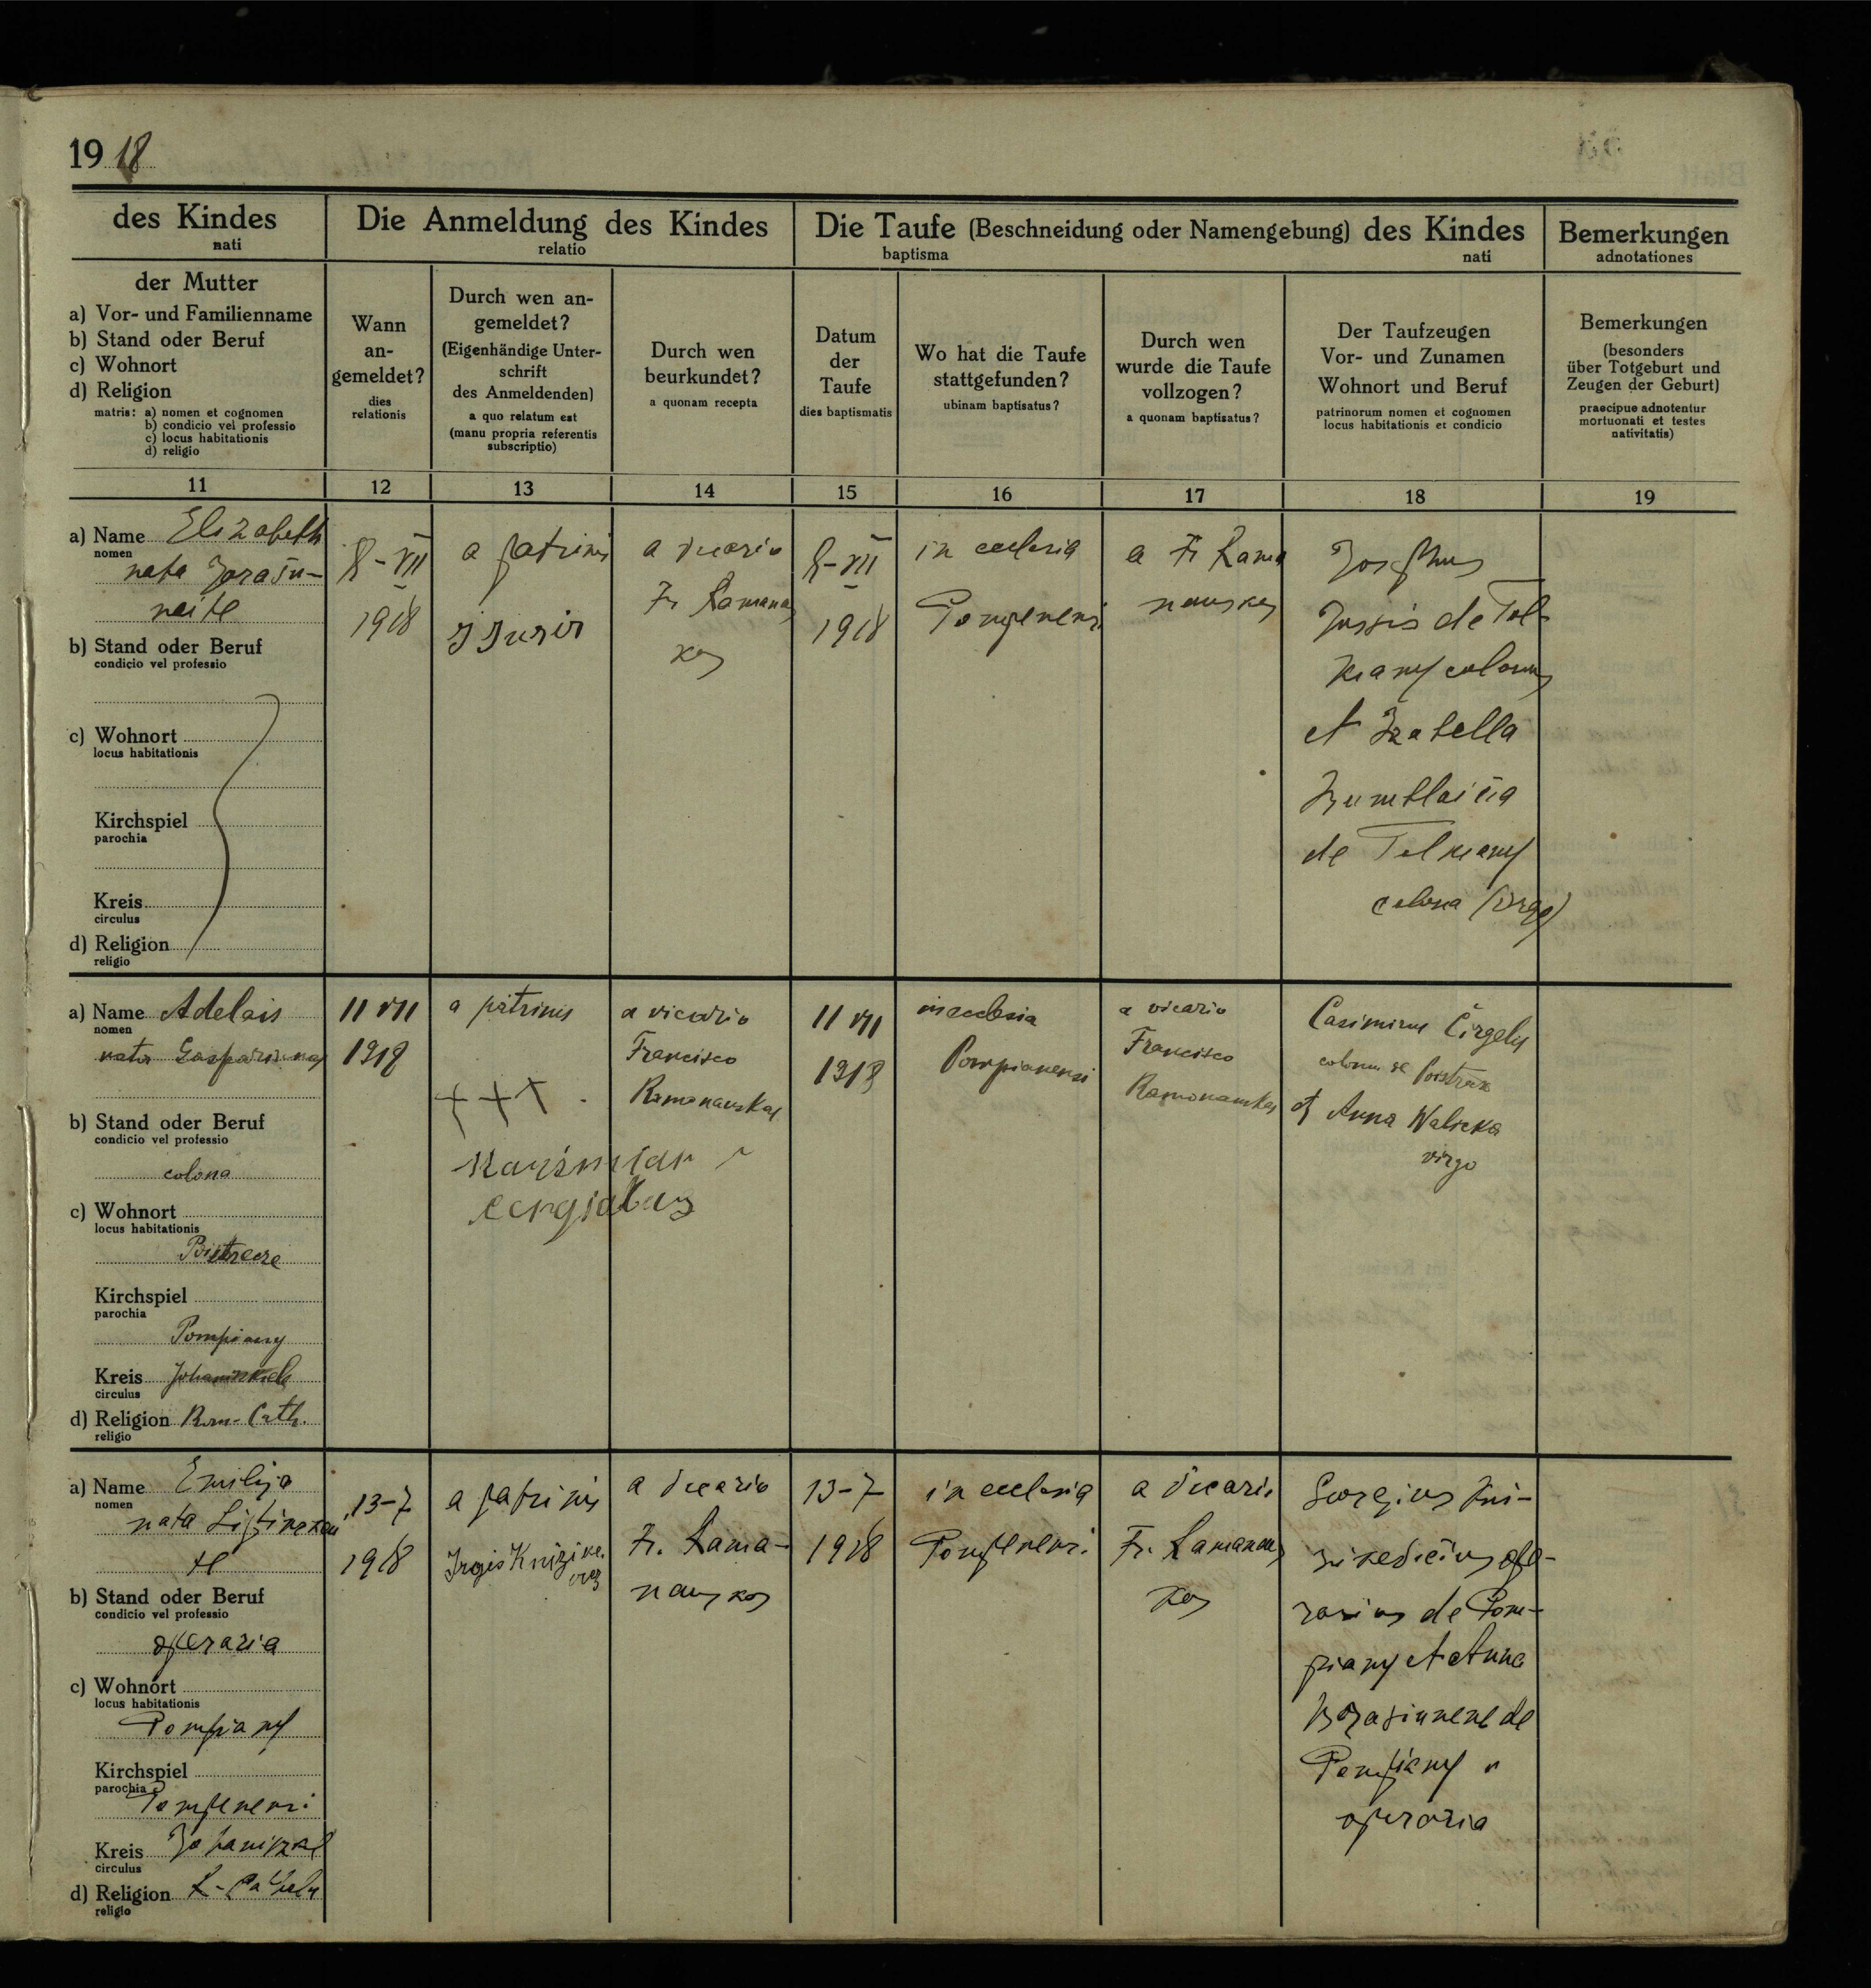 1918
des Kindes
nati
Die Anmeldung des Kindes
relatio
Die Taufe (Beschneidung oder Namengebung) des Kindes
baptisma nati
Bemerkungen
adnotationes
der Mutter
a) Vor- und Familienname
b) Stand oder Beruf
c) Wohnort
d) Religion
matris: a) nomen et cognomen
b) condicio vel professio
c) locus habitationis
d) religio
Wann
an-
gemeldet?
dies
relationis
Durch wen an-
gemeldet?
(Eigenhändige Unter-
schrift
des Anmeldenden)
a quo relatum est
(manu propria referentis
subscriptio)
Durch wen
beurkundet?
a quonam recepta
Datum
der
Taufe
dies baptismatis
Wo hat die Taufe
stattgefunden?
ubinam baptisatus?
Durch wen
wurde die Taufe
vollzogen?
a quonam baptisatus?
Der Taufzeugen
Vor- und Zunamen
Wohnort und Beruf
patrinorum nomen et cognomen
locus habitationis et condicio
Bemerkungen
(besonders
über Totgeburt und
Zeugen der Geburt)
praecipue adnotentur
mortuonati et testes
nativitatis)
11 12 13 14 15 16 17 18 19
a) Name Elizabeth
nomen
nata
naite
b) Stand oder Beruf
condicio vel professio
c) Wohnort
locus habitationis
Kirchspiel
parochia
Kreis
circulus
d) Religion
religio
8-VII
1918
a patrinis
a vicario
Fr Ramanaus
kas
8-VII
1918
in ecclesia
Pompenensi
a Fr Rama
nauskas
Josephus
de Tol-
colonus
et Izabella
de
colona virgo
a) Name Adelais
nomen
nata
b) Stand oder Beruf
condicio vel professio
colona
c) Wohnort
locus habitationis
Kirchspiel
parochia
Pompiany
Kreis
circulus
d) Religion Rom-Cath.
religio
11 VII
1918
a patrinis
+++
a vicario
Francisco
Ramanauskas
11 VII
1918
in ecclesia
Pompianensi
a vicario
Francisco
Ramonauskas
Casimirus Čirgelis
colonus de
et Anna Walicka
virgo
a) Name Emilija
nomen
nata
te
b) Stand oder Beruf
condicio vel professio
operaria
c) Wohnort
locus habitationis
Pompiany
Kirchspiel
parochia
Pompenensi
Kreis
circulus
d) Religion
religio
13-7
1918
a patrinis
a vicario
Fr. Rama-
nauskas
13-7
1918
in ecclesia
Pompenensi
a vicario
Fr. Ramanaus
kas
Georgius
ope-
rarius de Pom-
piany et Anna
de
Pompiany
operaria